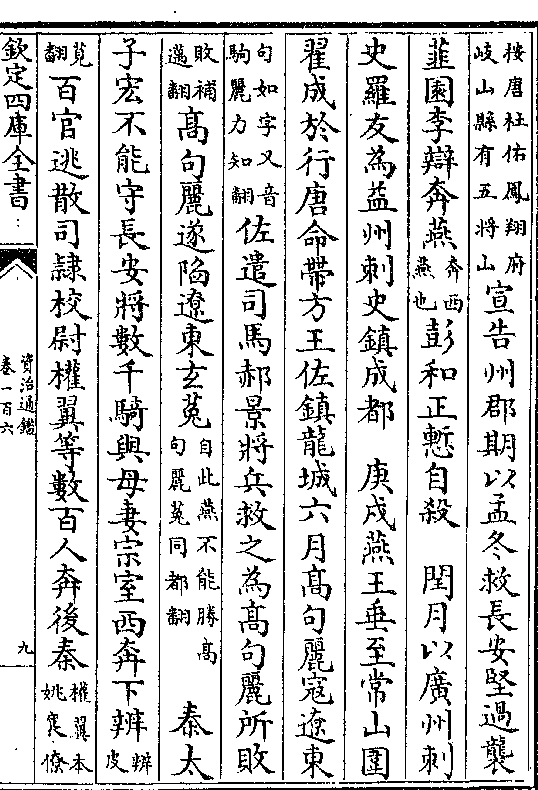 按唐杜佑鳳翔府岐山縣有五將山宣告州郡期以孟冬救長安堅過襲
韮園李辯奔燕奔西燕也彭和正慙自殺　閏月以廣州刺
史羅友為益州刺史鎮成都　庚戌燕王垂至常山圍
翟成於行唐命帶方王佐鎮龍城六月髙句麗寇遼東
句如字又音駒麗力知翻佐遣司馬郝景將兵救之為髙句麗所敗
敗補邁翻髙句麗遂陷遼東玄菟自此燕不能勝髙句麗菟同都翻　秦太
子宏不能守長安將數千騎與母妻宗室西奔下辨辨皮
莧翻百官逃散司隷校尉權翼等數百人奔後秦權翼本姚襄僚
欽定四庫全書
資治通鑑
卷一百六
九